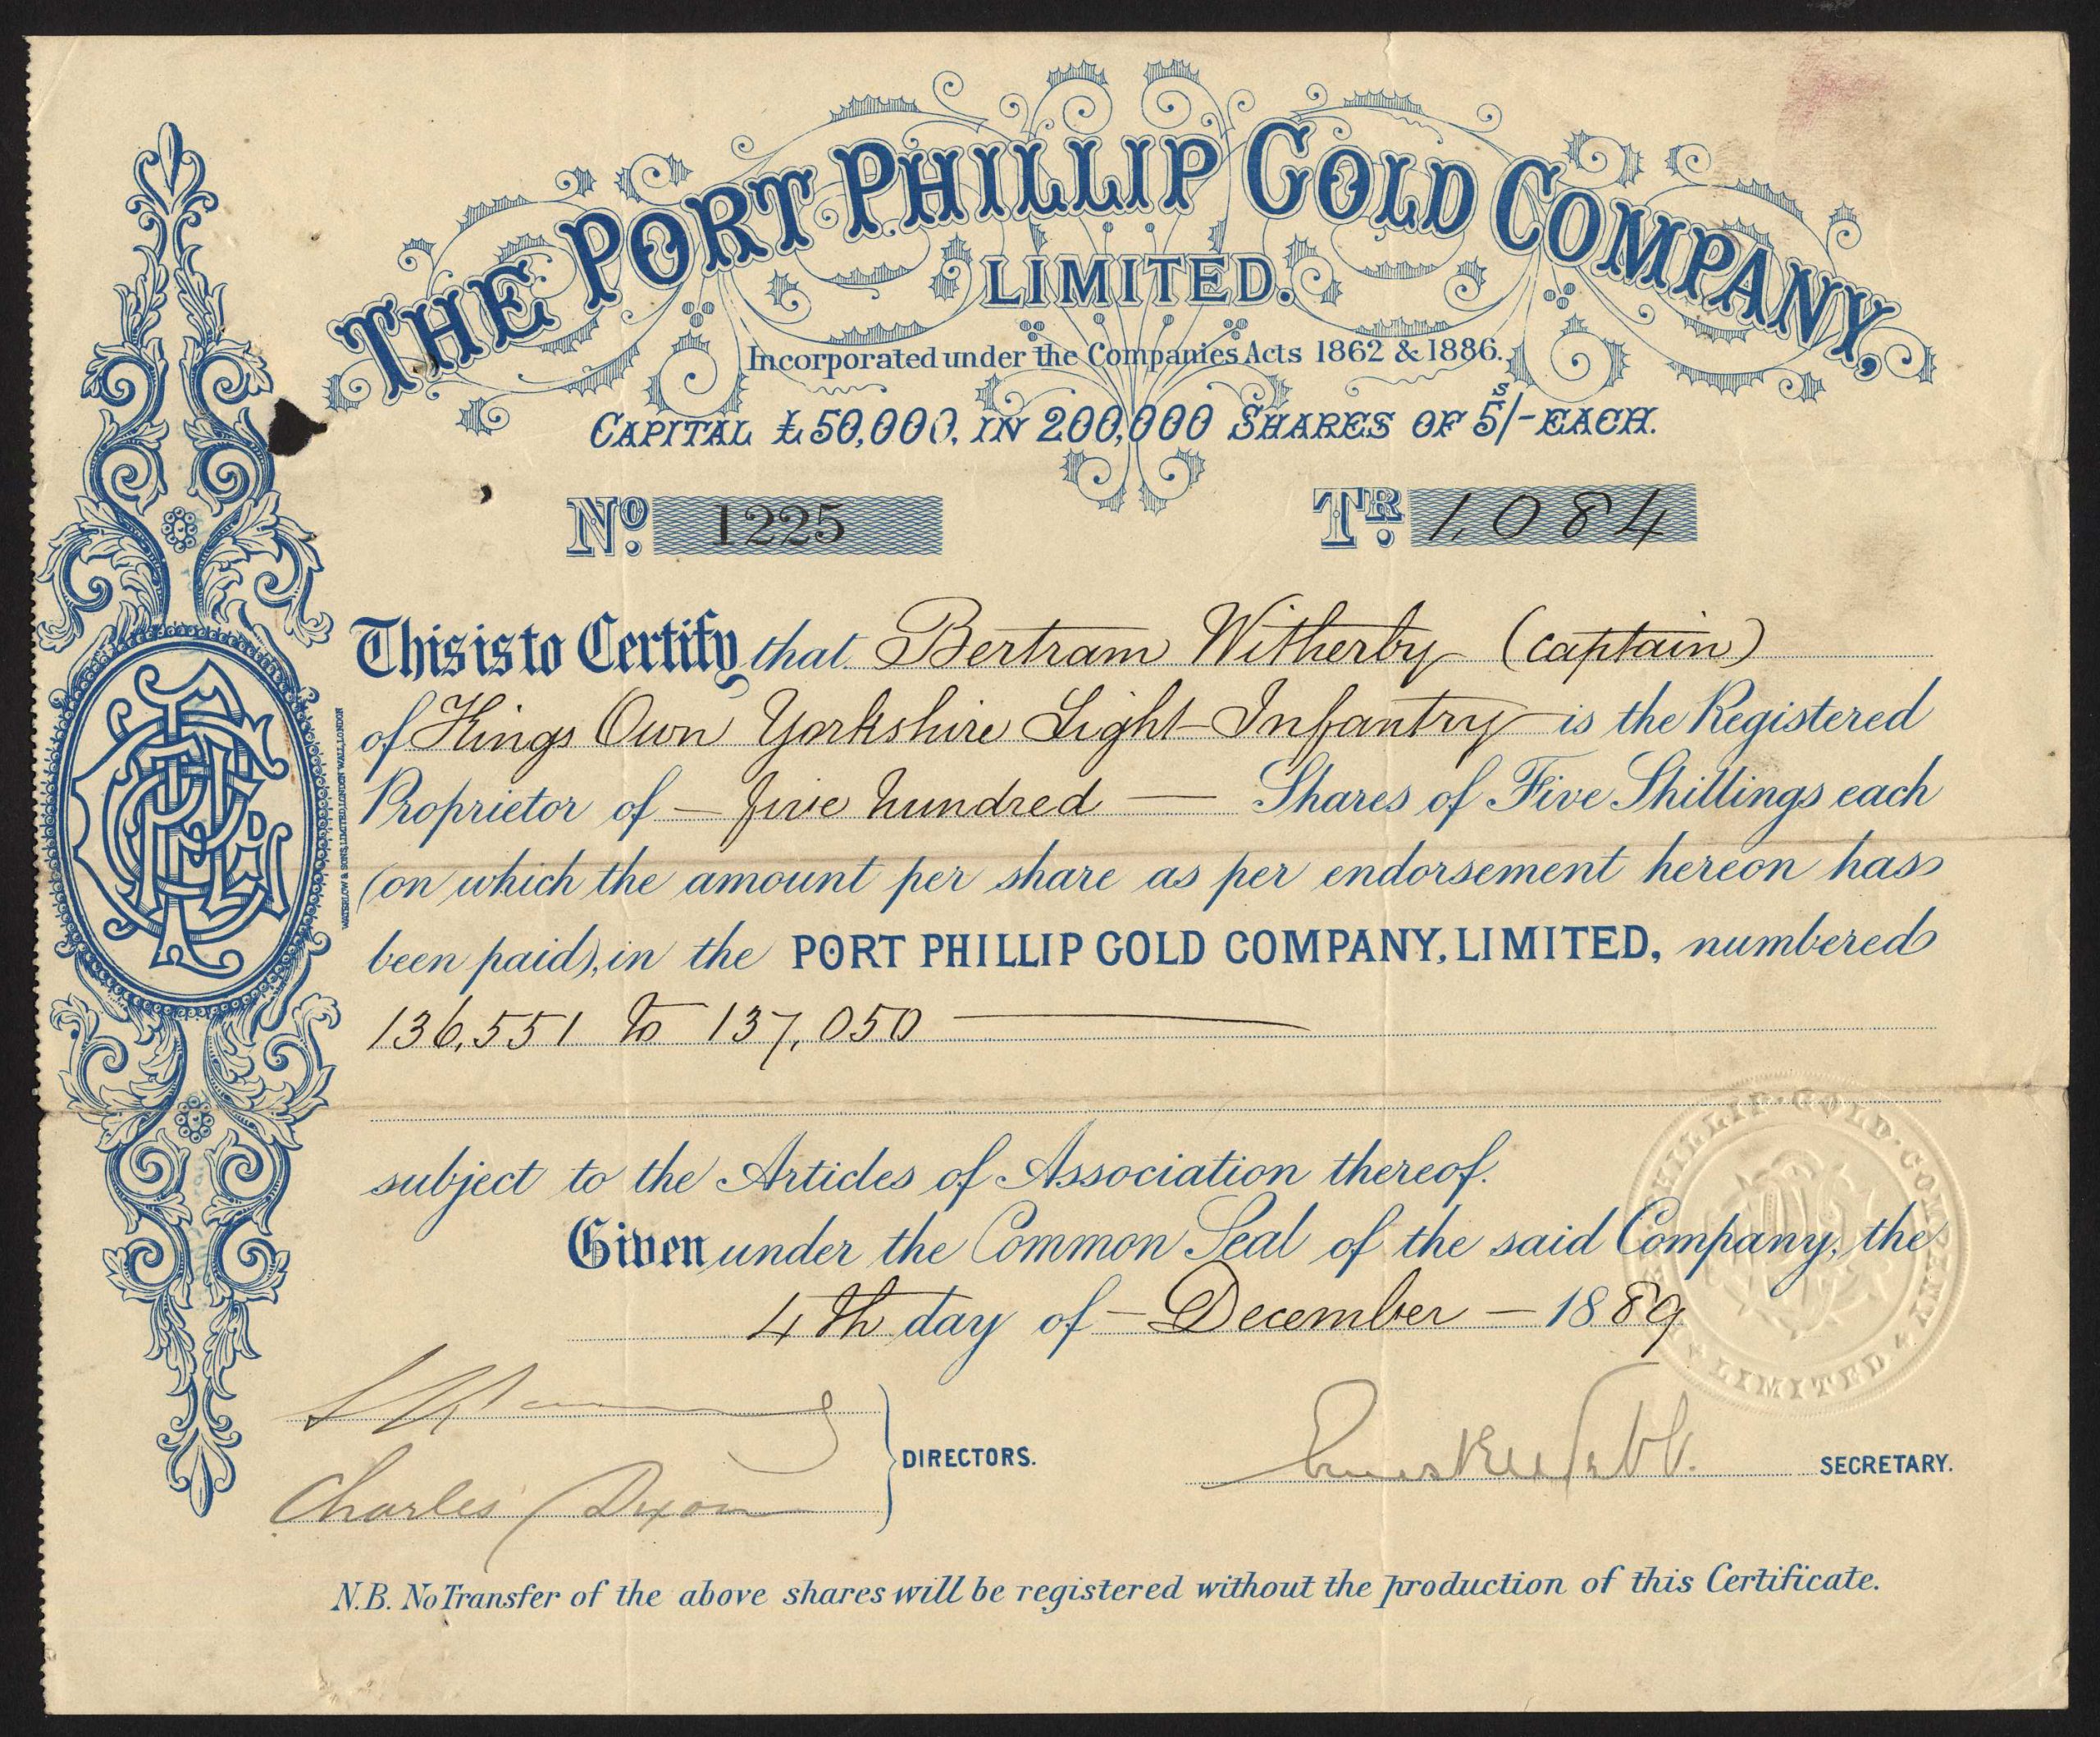 THE PORT PHILLIP GOLD COMPANY,
LIMITED.
Incorporated under the Companies Acts 1862 & 1886.
CAPITAL £50,000, IN 200,000 SHARES OF 5s/- EACH.
No. 1225 TR. 1,084
This is to Certify that Bertram Witherby (Captain)
of Kings Own Yorkshire Light Infantry is the Registered
Proprietor of — five hundred — Shares of Five Shillings each
(on which the amount per share as per endorsement hereon has
been paid), in the PORT PHILLIP GOLD COMPANY, LIMITED, numbered
136,551 to 137,050
subject to the Articles of Association thereof.
Given under the Common Seal of the said Company, the
4th day of — December — 1889
DIRECTORS.
Charles Dixon
SECRETARY.
N.B. No Transfer of the above shares will be registered without the production of this Certificate.
WATERLOW & SONS, LIMITED, LONDON WALL, LONDON
PHILLIP · GOLD · COMPANY
LIMITED